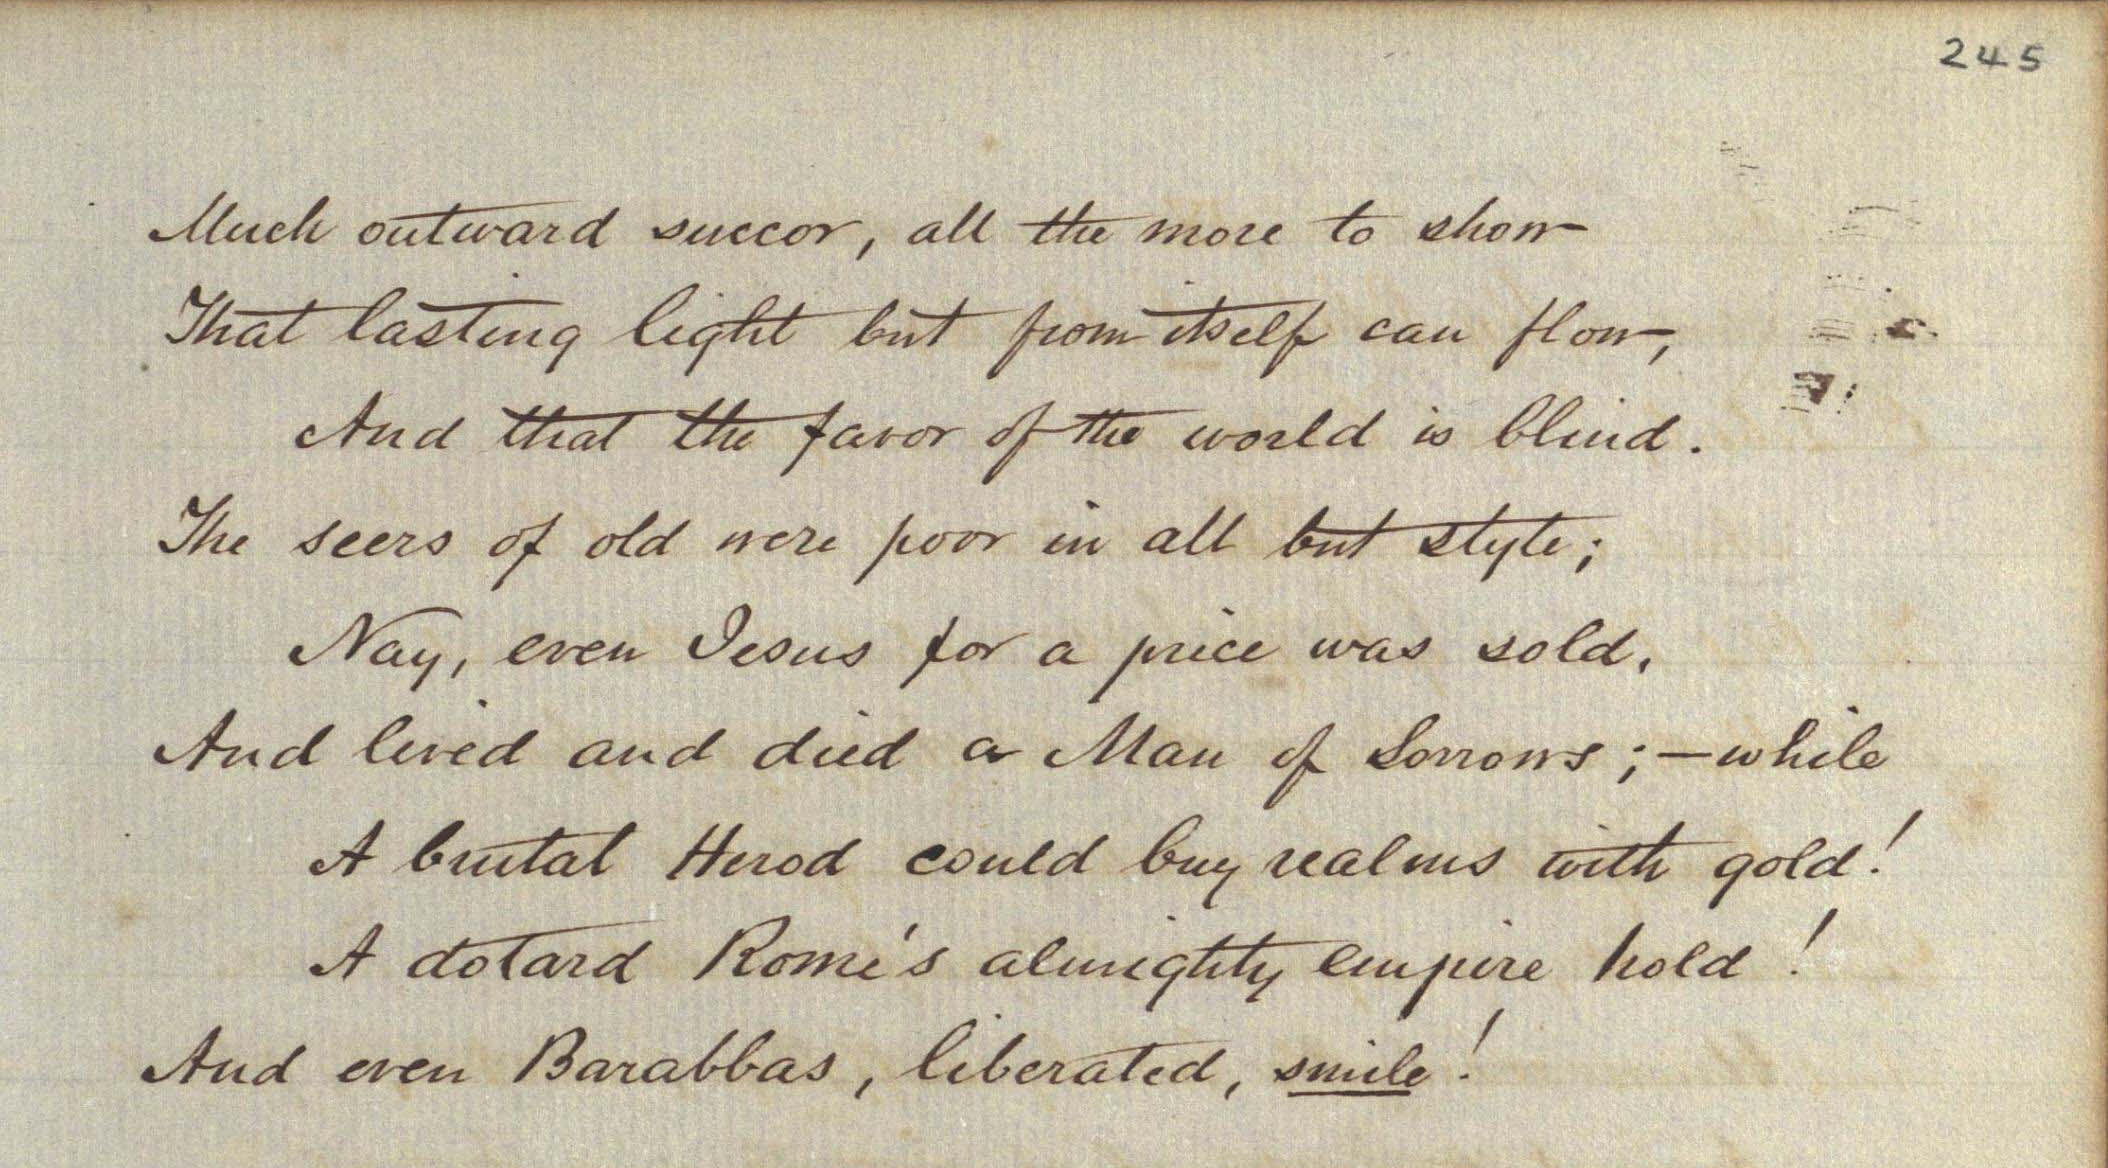 245
Much outward succor, all the more to show
That lasting light but from itself can flow,
And that the favor of the world is blind.
The seers of old were poor in all but style;
Nay, even Jesus for a price was sold,
And lived and died a Man of Sorrows; — while
A brutal Herod could buy realms with gold!
A dotard Rome's almighty empire hold!
And even Barabbas, liberated, smile!